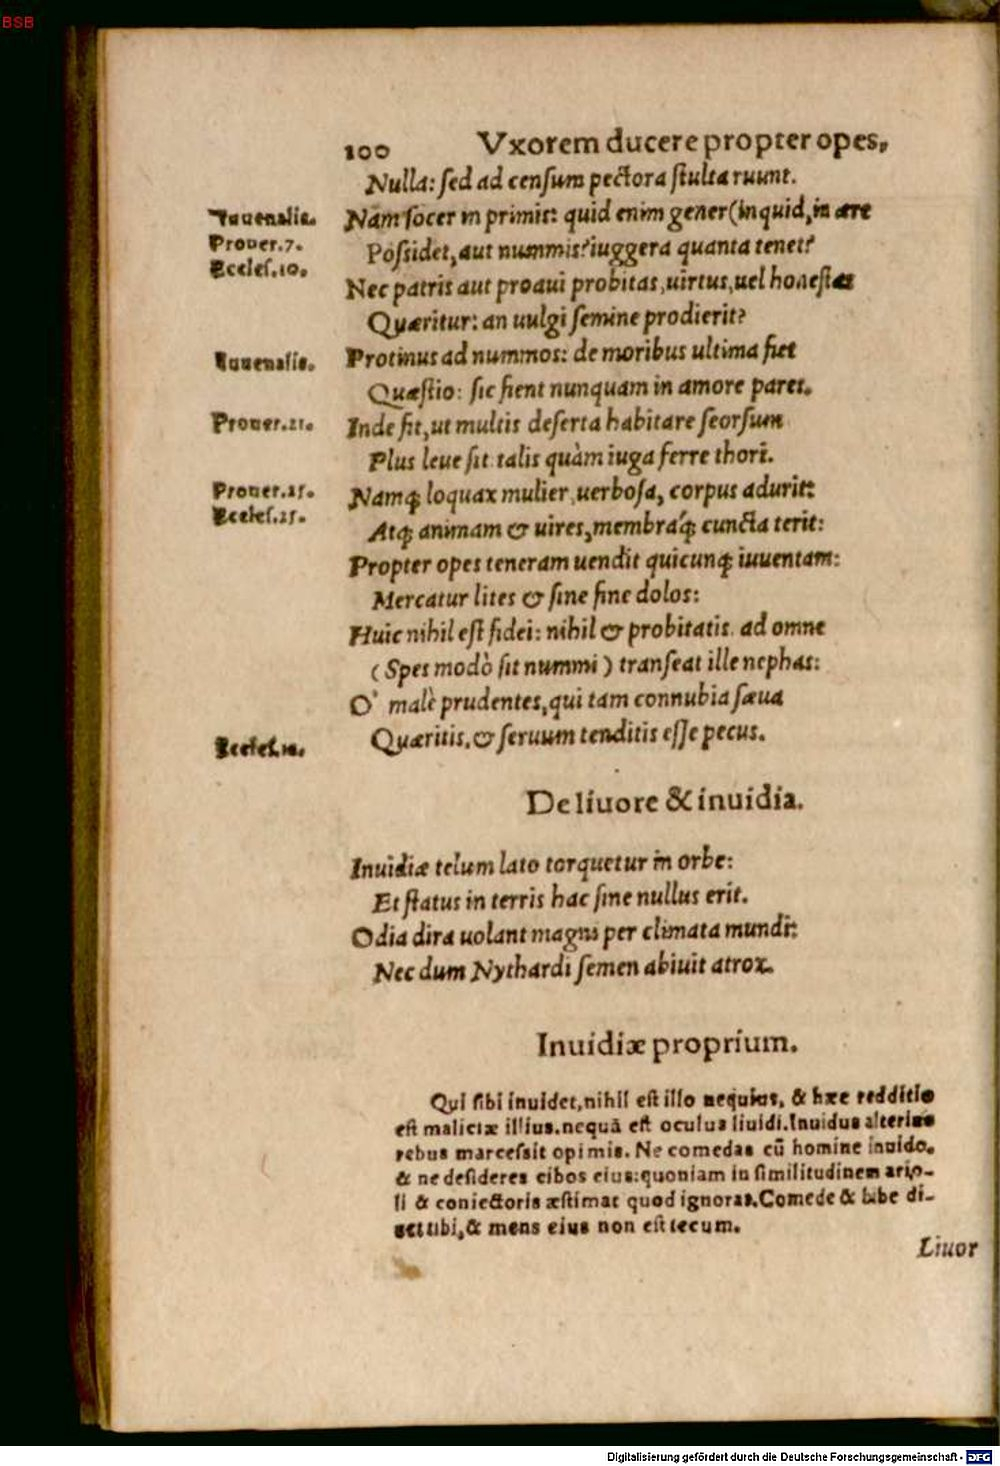 BSB
100 Vxorem ducere propter opes,
Nulla: ſed ad cenſum pectora ſtulta ruunt.
Iuuenalis. Nam ſocer in primis: quid enim gener (inquid, in ære
Prouer.7. Poſsidet, aut nummis? iuggera quanta tenet?
Eccleſ.10.
Nec patris aut proaui probitas, uirtus, uel honeſtas
Quæritur: an uulgi ſemine prodierit?
Iuuenalis. Protinus ad nummos: de moribus ultima fiet
Quæſtio: ſic fient nunquam in amore pares.
Prouer.21. Inde fit, ut multis deſerta habitare ſeorſum
Plus leue ſit talis quàm iuga ferre thori.
Prouer.25. Namq; loquax mulier, uerboſa, corpus adurit:
Eccleſ.25. Atq; animam & uires, membraq́; cuncta terit:
Propter opes teneram uendit quicunq; iuuentam:
Mercatur lites & ſine fine dolos:
Huic nihil eſt fidei: nihil & probitatis. ad omne
(Spes modò ſit nummi) tranſeat ille nephas:
O' malè prudentes, qui tam connubia ſæua
Eccleſ.10. Quæritis, & ſeruum tenditis eſſe pecus.
De liuore & inuidia.
Inuidiæ telum lato torquetur in orbe:
Et ſtatus in terris hac ſine nullus erit.
Odia dira uolant magni per climata mundi:
Nec dum Nythardi ſemen abiuit atrox.
Inuidiæ proprium.
Qui ſibi inuidet, nihil eſt illo nequius, & hæc redditio
eſt maliciæ illius. nequā eſt oculus liuidi. Inuidus alterius
rebus marceſsit opimis. Ne comedas cū homine inuido,
& ne deſideres cibos eius: quoniam in ſimilitudinem ario-
li & coniectoris æſtimat quod ignorat. Comede & bibe di-
cet tibi, & mens eius non eſt tecum.
Liuor
Digitalisierung gefördert durch die Deutsche Forschungsgemeinschaft - DFG